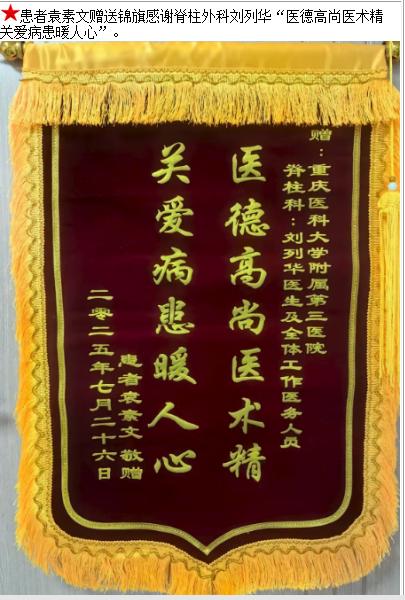 ★患者袁素文赠送锦旗感谢脊柱外科刘列华“医德高尚医术精
关爱病患暖人心”。
赠：重庆医科大学附属第三医院
脊柱科：刘列华医生及全体工作医务人员
医德高尚医术精
关爱病患暖人心
患者袁素文敬赠
二零二五年七月二十六日